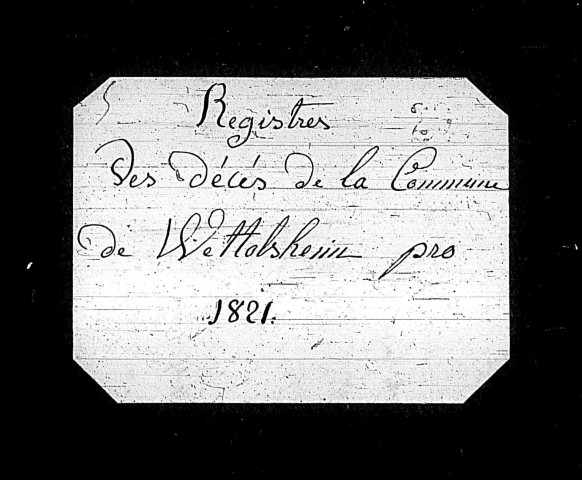 Registres
Des décés de la Commune
de Wettolsheim pro
1821.